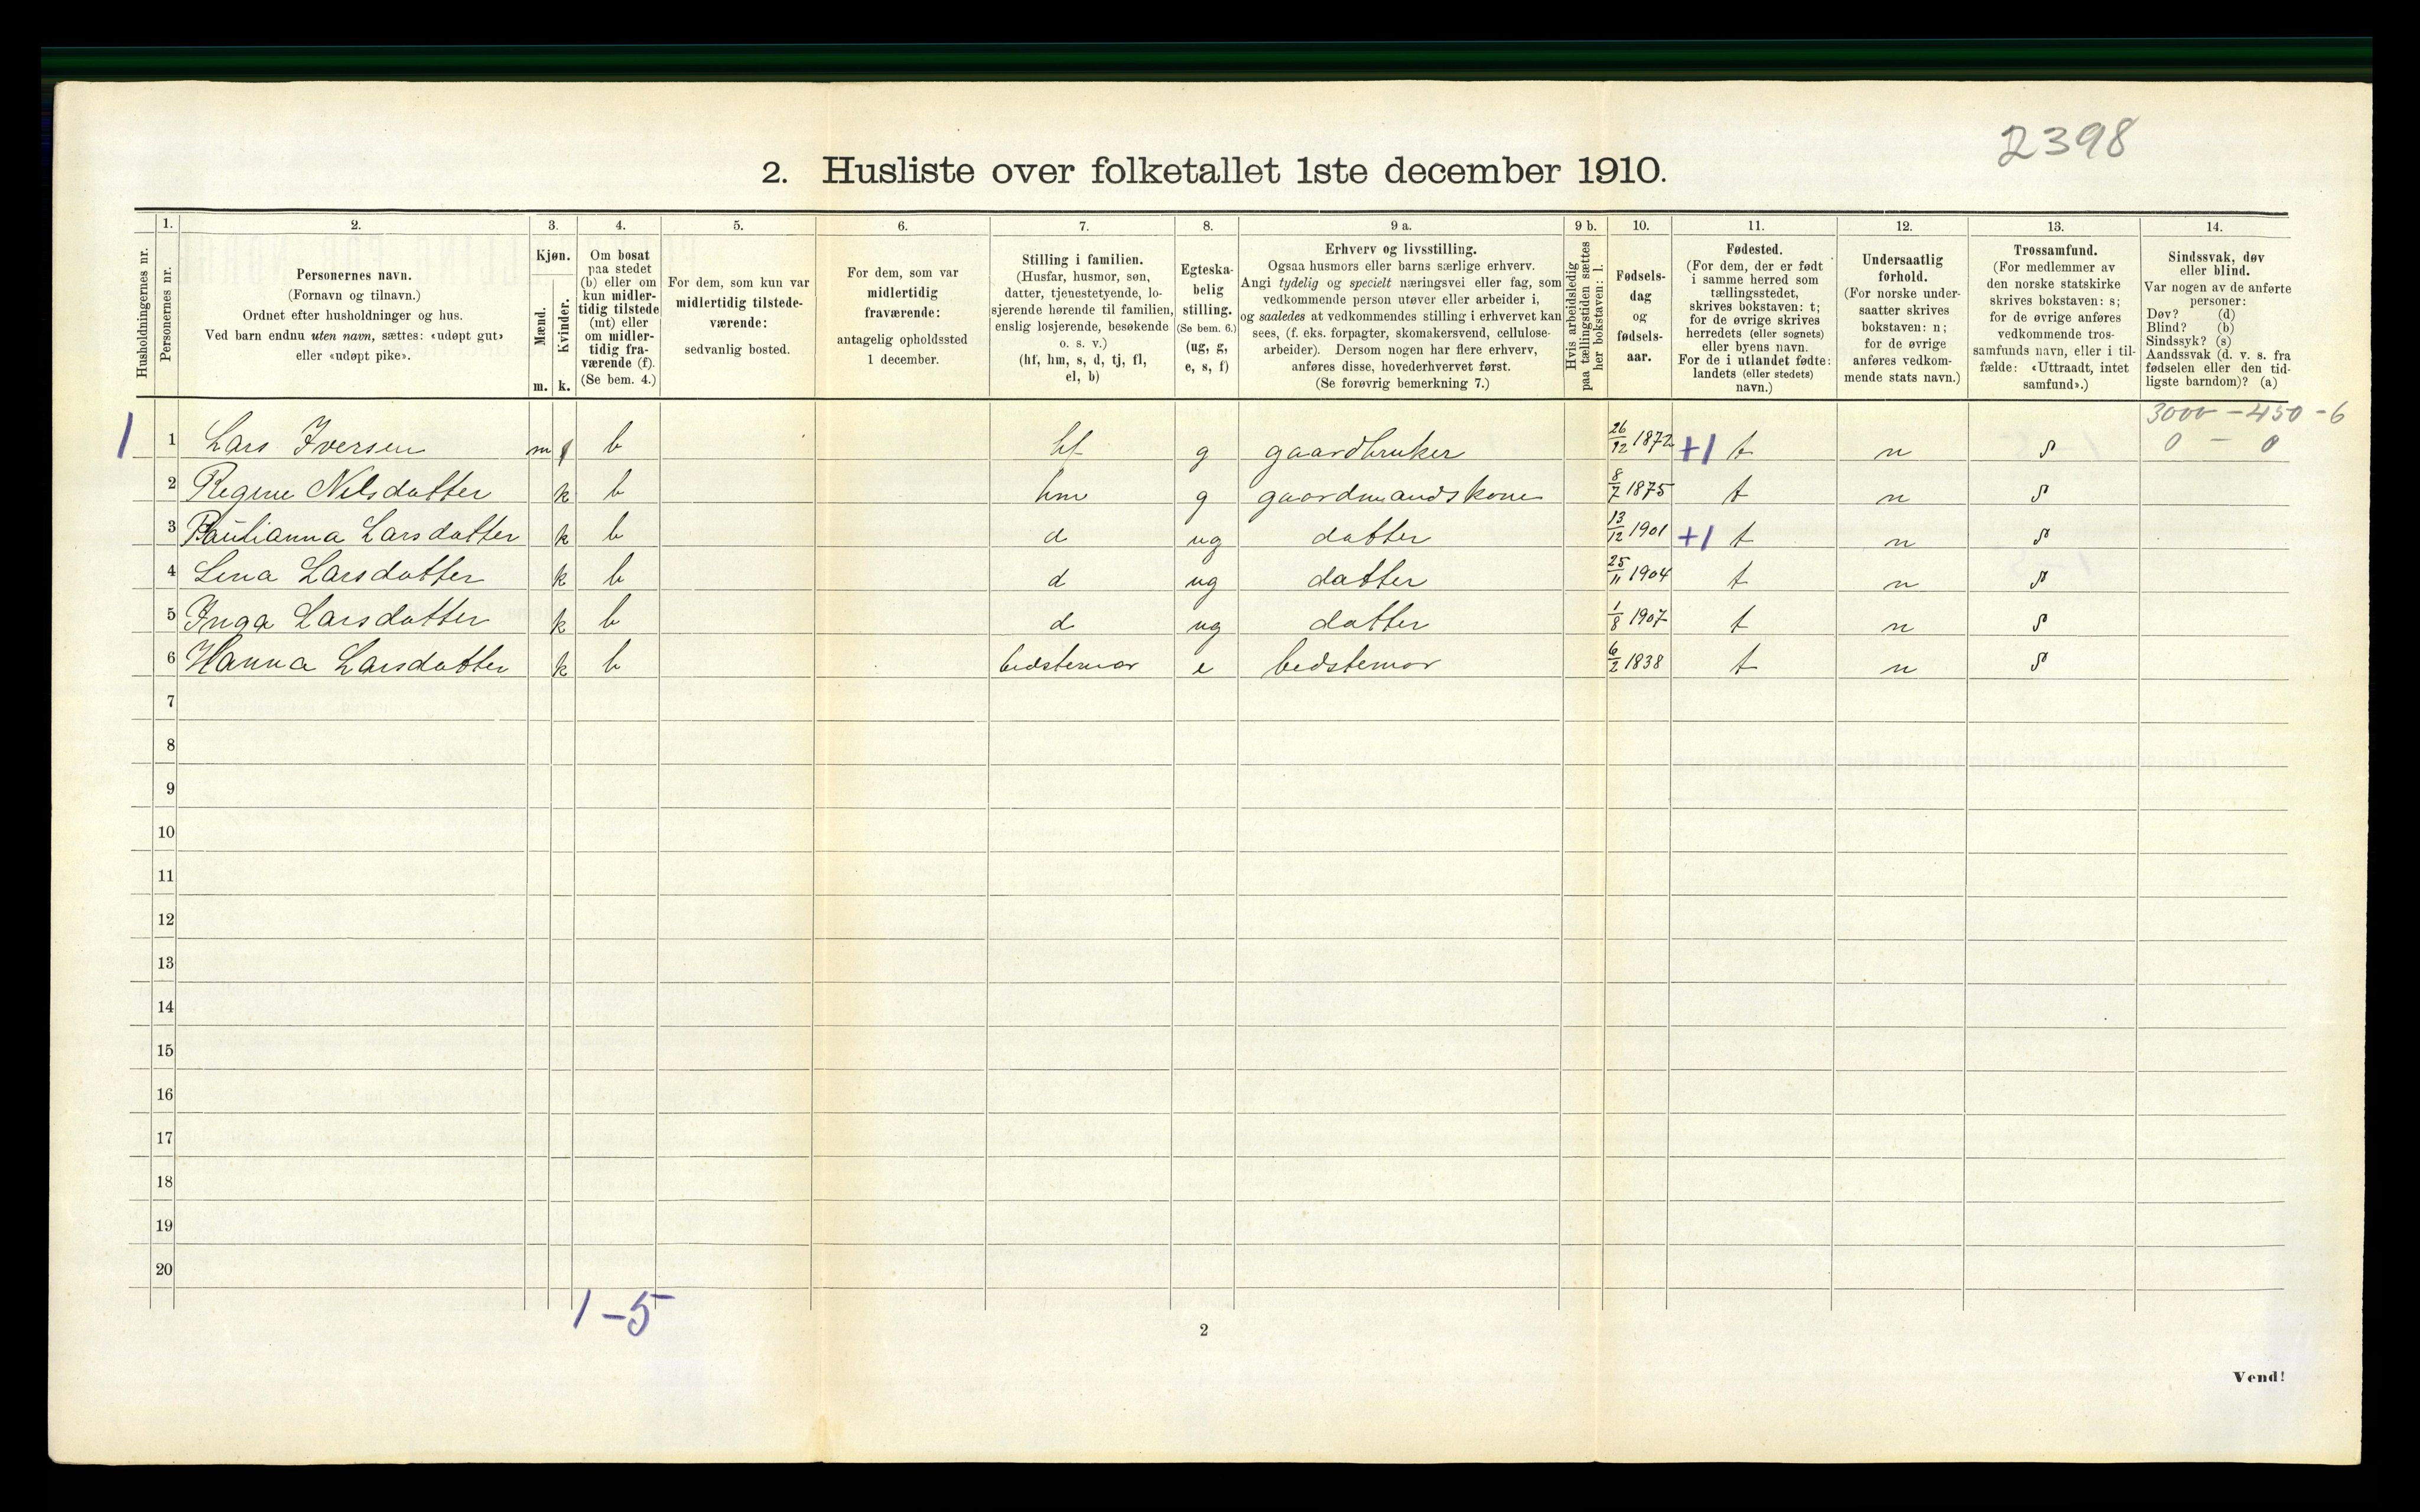 2398
2. Husliste over folketallet 1ste december 1910.
Husholdningernes nr.
1.
Personernes nr.
2.
Personernes navn.
(Fornavn og tilnavn.)
Ordnet efter husholdninger og hus.
Ved barn endnu uten navn, sættes: «udøpt gut»
eller «udøpt pike».
3.
Kjøn.
Mænd.
m.
Kvinder.
k.
4.
Om bosat
paa stedet
(b) eller om
kun midler-
tidig tilstede
(mt) eller
om midler-
tidig fra-
værende (f).
(Se bem. 4.)
5.
For dem, som kun var
midlertidig tilstede-
værende:
sedvanlig bosted.
6.
For dem, som var
midlertidig
fraværende:
antagelig opholdssted
1 december.
7.
Stilling i familien.
(Husfar, husmor, søn,
datter, tjenestetyende, lo-
sjerende hørende til familien,
enslig losjerende, besøkende
o. s. v.)
(hf, hm, s, d, tj, fl,
el, b)
8.
Egteska-
belig
stilling.
(Se bem. 6.)
(ug, g,
e, s, f)
9 a.
Erhverv og livsstilling.
Ogsaa husmors eller barns særlige erhverv.
Angi tydelig og specielt næringsvei eller fag, som
vedkommende person utøver eller arbeider i,
og saaledes at vedkommendes stilling i erhvervet kan
sees, (f. eks. forpagter, skomakersvend, cellulose-
arbeider). Dersom nogen har flere erhverv,
anføres disse, hovederhvervet først.
(Se forøvrig bemerkning 7.)
9 b.
Hvis arbeidsledig
paa tællingstiden sættes
her bokstaven: l.
10.
Fødsels-
dag
og
fødsels-
aar.
11.
Fødested.
(For dem, der er født
i samme herred som
tællingsstedet,
skrives bokstaven: t;
for de øvrige skrives
herredets (eller sognets)
eller byens navn.
For de i utlandet fødte:
landets (eller stedets)
navn.)
12.
Undersaatlig
forhold.
(For norske under-
saatter skrives
bokstaven: n;
for de øvrige
anføres vedkom-
mende stats navn.)
13.
Trossamfund.
(For medlemmer av
den norske statskirke
skrives bokstaven: s;
for de øvrige anføres
vedkommende tros-
samfunds navn, eller i til-
fælde: «Uttraadt, intet
samfund».)
14.
Sindssvak, døv
eller blind.
Var nogen av de anførte
personer:
Døv? (d)
Blind? (b)
Sindssyk? (s)
Aandssvak (d. v. s. fra
fødselen eller den tid-
ligste barndom)? (a)
3000 - 450 - 6
1 1 Lars Iversen m b hf g gaardbruker 26/12 1872 +1 t n s 0 - 0
2 Regine Nilsdatter k b hm g gaardmandskone 8/7 1875 t n s
3 Paulianna Larsdatter k b d ug datter 13/12 1901 +1 t n s
4 Lina Larsdatter k b d ug datter 25/11 1904 t n s
5 Inga Larsdatter k b d ug datter 1/8 1907 t n s
6 Hanna Larsdatter k b bedstemor e bedstemor 6/2 1838 t n s
7
8
9
10
11
12
13
14
15
16
17
18
19
20
1-5
2
Vend!